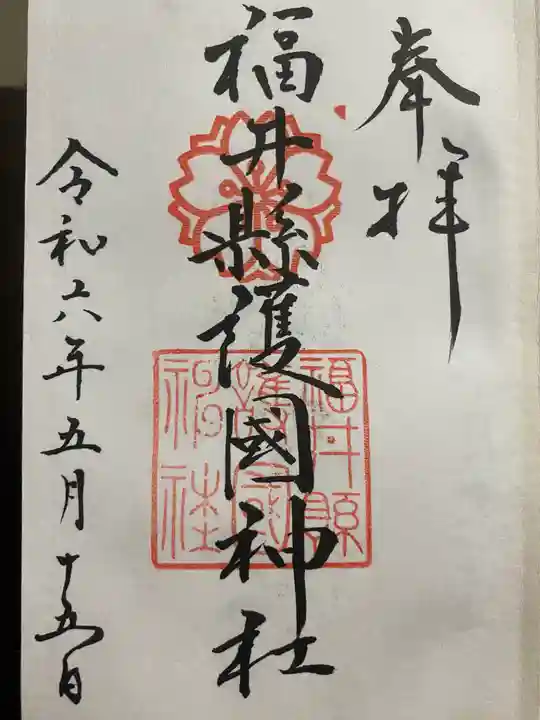 奉拝
福井縣護國神社
福井縣護國神社
令和六年五月十五日